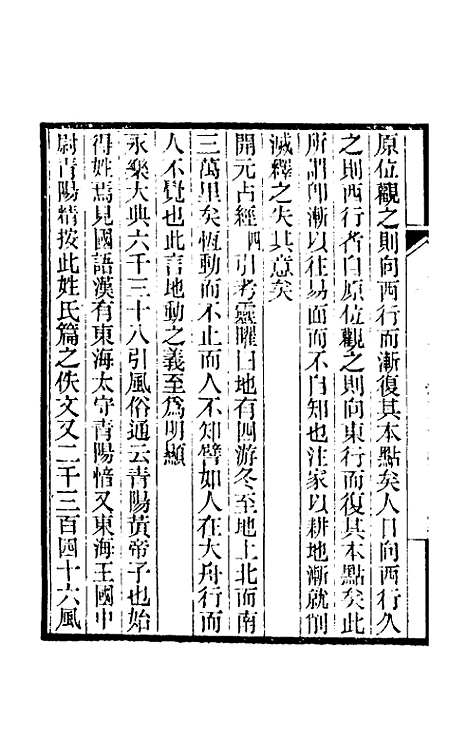 原位觀之則向西行而漸復其本點矣人日向西行久
之則西行者自原位觀之則向東行而復其本點矣此
所謂卽漸以往易面而不自知也注家以耕地漸就削
滅釋之失其意矣
開元占經四引考靈曜曰地有四游冬至地上北而南
三萬里矣恆動而不止而人不知譬如人在大舟行而
人不覺也此言地動之義至爲明顯
永樂大典六千三十八引風俗通云靑陽黃帝子也始
得姓焉見國語漢有東海太守靑陽愔又東海王國中
尉靑陽精按此姓氏篇之佚文又二千三百四十六風